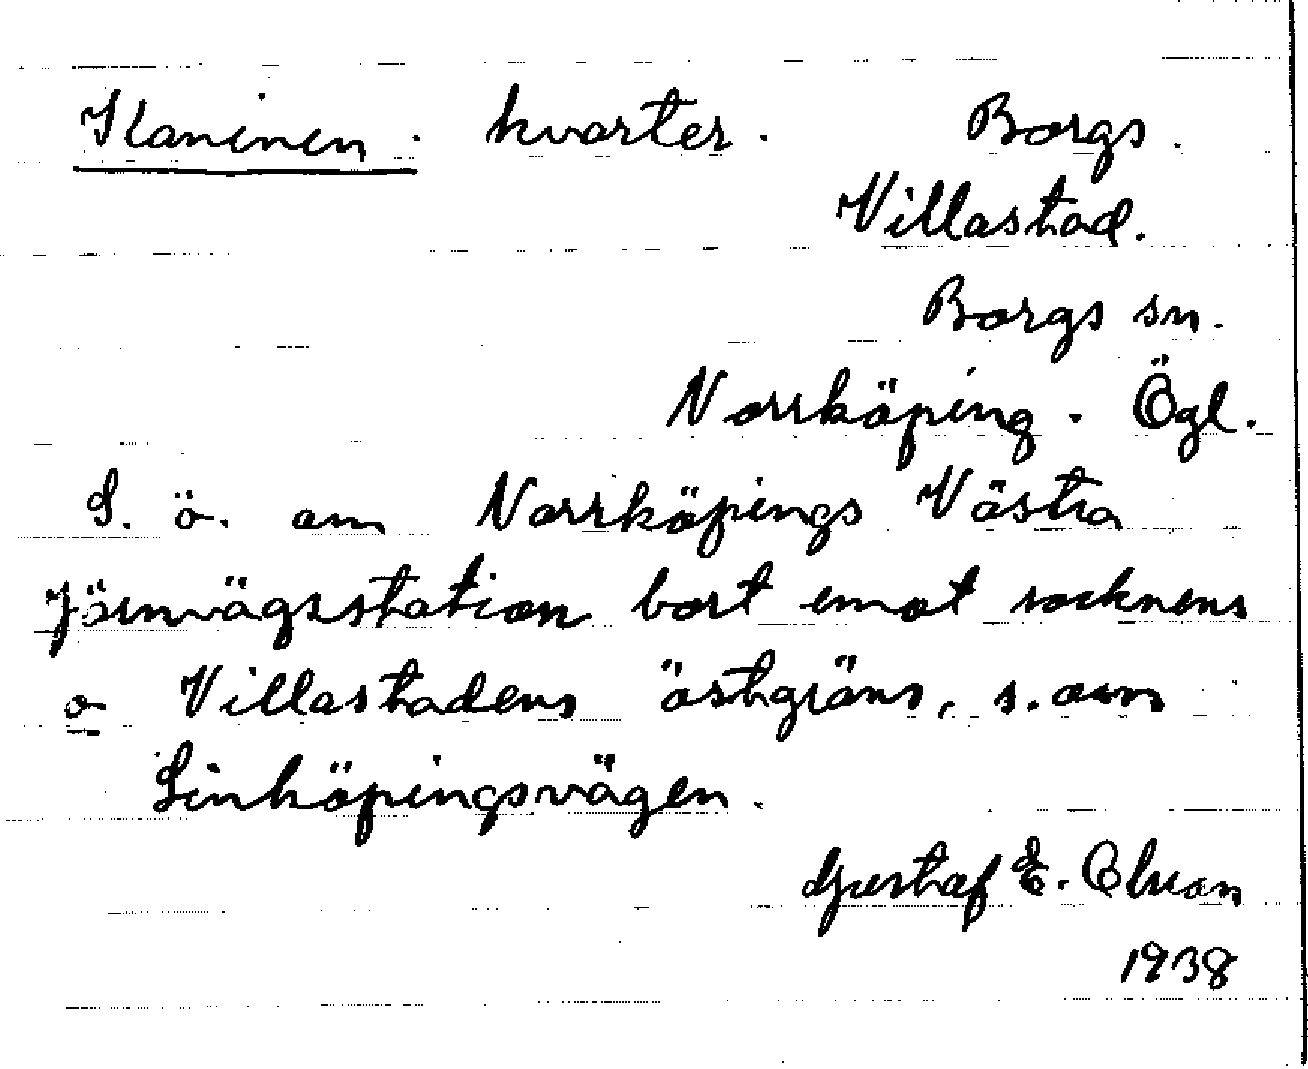 Kaninen. kvarter. Borgs.
Villastad.
Borgs sn.
Norrköping. Ögl.
S. ö. om Norrköpings Västra
Järnvägsstation bort emot socknens
o Villastadens östgräns, s. om
Linköpingsvägen.
Gustaf E. Olsson
1938